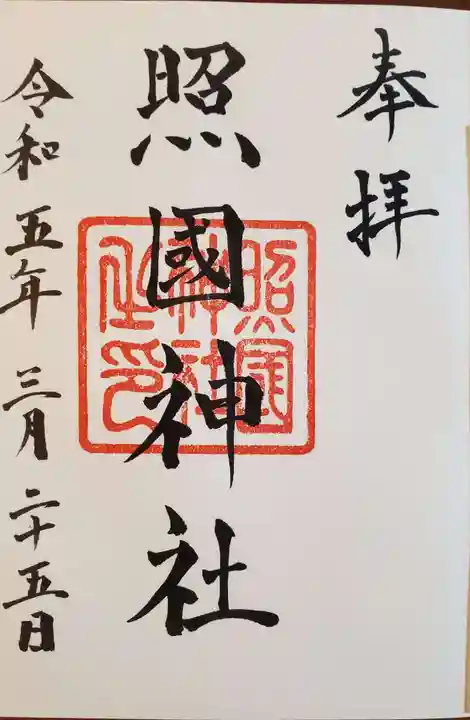 奉拝
照國神社
照國
神社
之印
令和五年三月二十五日